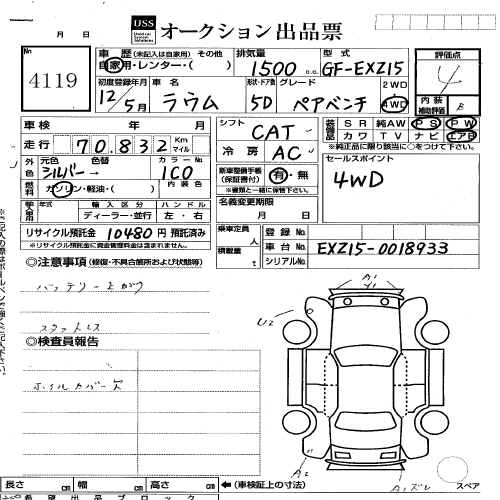 月 日
USS オークション出品票
No 4119
車歴(未記入は自家用) その他
自家用・レンター・( )
排気量
1500 c.c.
型式
GF-EXZ15
評価点
4
初度登録年月
12/5月
車名
ラウム
形状・ドア数
5D
グレード
ペアベンチ
2WD
4WD
内装
補助評価
B
車検 年 月
走行 70,832 Km マイル
外色 元色 シルバー 色替 → カラーNo 1C0
内装色
燃料 ガソリン・軽油・( )
輸入車用 輸入区分 ハンドル
ディーラー・並行 左・右
リサイクル預託金 10480円 預託済み
※リサイクル預託金に資金管理料金は含みません。
シフト CAT
冷房 AC
新車整備手帳(保証書付) 有・無
※書類と一緒に保管下さい。
名義変更期限
月 日
装備品 SR 純AW PS PW
カワ TV ナビ エアB
※純正品に限り該当に○をつけて下さい。
セールスポイント
4WD
乗車定員 人
積載量 t
登録No
車台No EXZ15-0018933
シリアルNo
◎注意事項(修復・不具合箇所および状態等)
バッテリー上がり
スタットレス
◎検査員報告
ホイルカバー欠
A1
U2
A2
A1ズレ
長さ cm 幅 cm 高さ cm ←(車検証上の寸法)
スペア
希望出品ブロック